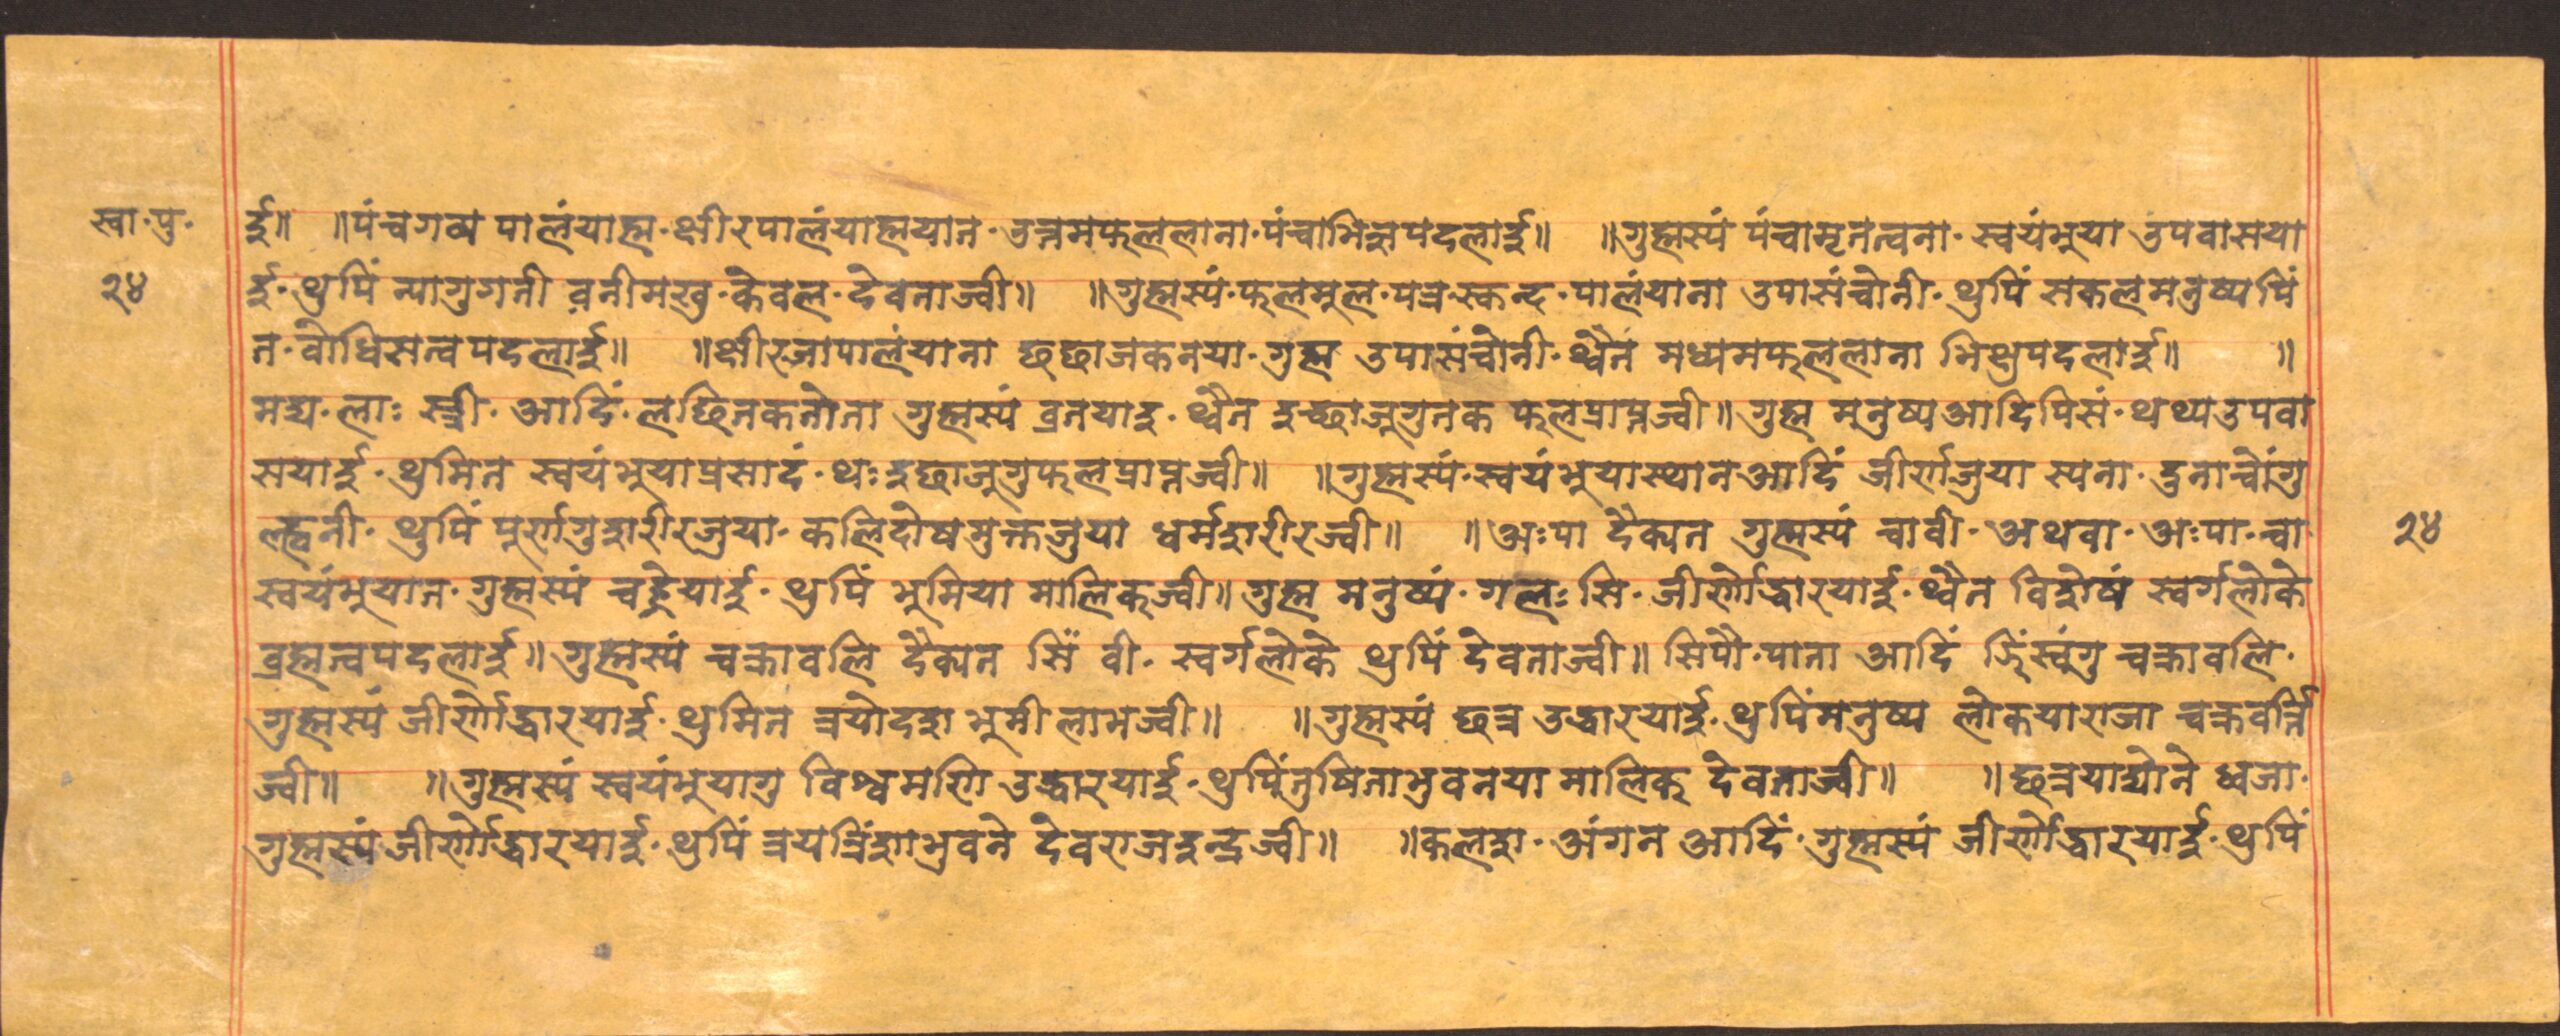 स्वा·पु· ई॥ ॥पंचगव्य पालंयाह्म·क्षीरपालंयाह्मयात·उत्तमफललाना·पंचाभिज्ञपदलाई॥ ॥गुह्मस्यं पंचामृतत्वना·स्वयंभुया उपवासया
२४ ई·थुपिं न्यागुगती वनीमखु·केवल·देवताज्वी॥ ॥गुह्मस्यं·फलमुल·पत्र·स्कन्द·पालंयाना उपासंचोनी·थुपिं सकलमनुष्यपिं
त·बोधिसत्वपदलाई॥ ॥क्षीरजापालंयाना छछाजकनया·गुह्म उपासंचोनी·थ्वैतं मध्यमफललाना भिक्षुपदलाई॥ ॥
मद्य·लाः स्त्री·आदिं·लछिनकतोता गुह्मस्यं व्रतयाइ·थ्वैत इच्छाजूगुतक फलप्राप्तज्वी॥गुह्म मनुष्यआदिपिसं·थथ्यउपवा
सयाई·थुमित स्वयंभुयाप्रसादं·थःइछाजुगुफलप्राप्तज्वी॥ ॥गुह्मस्यं·स्वयंभुयास्थानआदिं जीर्णजुया स्यना·दुनाच्वोंगु
ल्ह्वनी·थुपिं पूर्णगुशरीरजुया·कलिदोषमुक्तजुया धर्मशरीरज्वी॥ ॥अःपा दैक्यत गुह्मस्यं चावी·अथवा·अःपा·चा २४
स्वयंभुयात·गुह्मस्यं चढेयाई·थुपिं भुमिया मालिकज्वी॥गुह्म मनुष्यं·गलः सि·जीर्णोद्धारयाई·थ्वैत विशेषं स्वर्गलोके
ब्रह्मत्वपदलाई॥गुह्मस्यं चक्रावलि दैक्यत सिं वी·स्वर्गलोके थुपिं देवताज्वी॥सिपौ·पाता आदिं झिंस्वंगु चक्रावलि·
गुह्मस्यं जीर्णोद्धारयाई·थुमित त्रयोदश भुमी लाभज्वी॥ ॥गुह्मस्यं छत्र उद्धारयाई·थुपिंमनुष्य लोकयाराजा चक्रवर्त्ति
ज्वी॥ ॥गुह्मस्यं स्वयंभुयागु विश्वमणि उद्धारयाई·थुपिंतुषिताभुवनया मालिक देवताज्वी॥ ॥छत्रयाद्योने ध्वजा·
गुह्मस्यं जीर्णोद्धारयाई·थुपिं त्रयत्रिंशाभुवने देवराजइन्द्रज्वी॥ ॥कलश·अंगन आदिं·गुह्मस्यं जीर्णोद्धारयाई·थुपिं